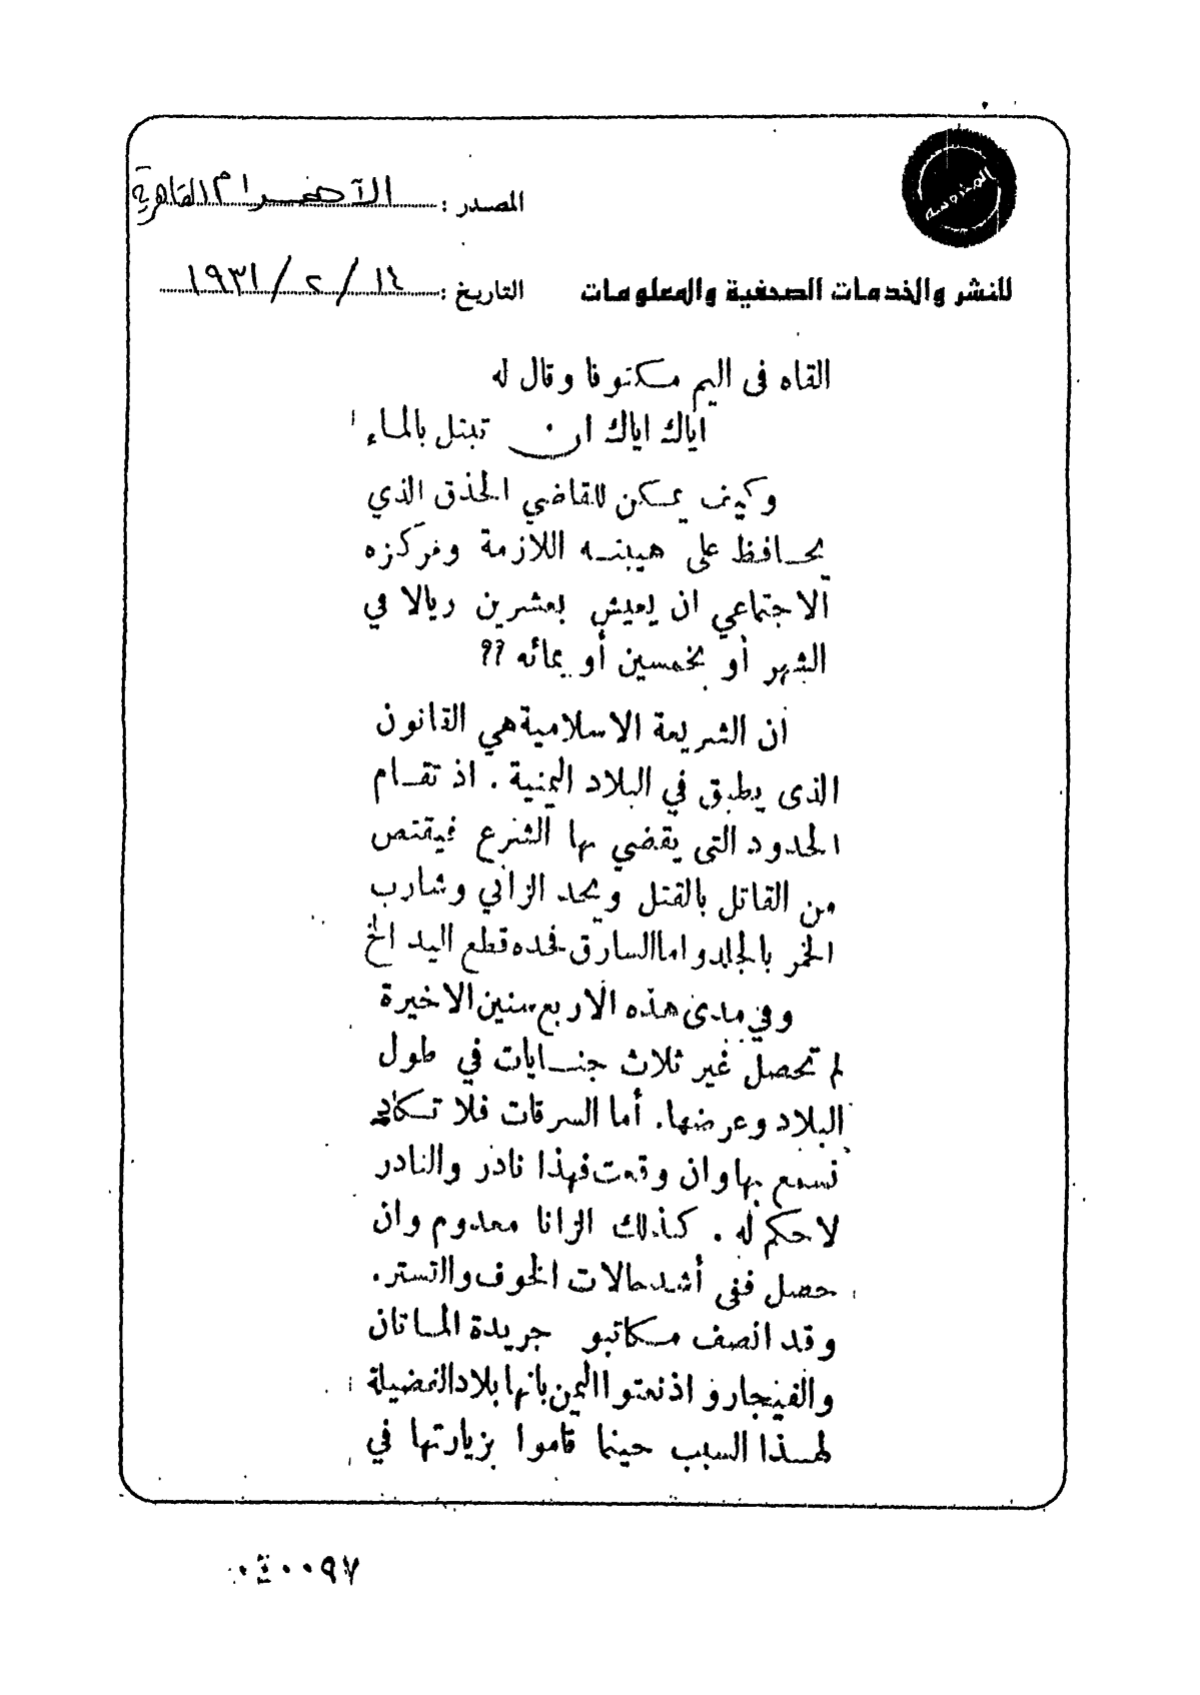 المصدر : الأهرام القاهرية
المحروسه
للنشر والخدمات الصحفية والمعلومات
التاريخ : ١٤ / ٢ / ١٩٣١
القاه فى اليم مكتوفا وقال له
اياك اياك ان تبتل بالماء
وكيف يمكن للقاضي الحذق الذي
يحافظ على هيبته اللازمة ومركزه
الاجتماعي ان يعيش بعشرين ريالا في
الشهر أو بخمسين أو بمائه ؟؟
ان الشريعة الاسلامية هي القانون
الذى يطبق في البلاد اليمنية . اذ تقام
الحدود التى يقضي بها الشرع فيقتص
من القاتل بالقتل ويحد الزاني وشارب
الخمر بالجلد واما السارق فحده قطع اليد الخ
وفي مدى هذه الاربع سنين الاخيرة
لم تحصل غير ثلاث جنايات في طول
البلاد وعرضها. أما السرقات فلا تكاد
نسمع بها وان وقعت فهذا نادر والنادر
لا حكم له . كذلك الزنا معدوم وان
حصل ففى أشد حالات الخوف والتستر.
وقد انصف مكاتبو جريدة الماتان
والفيجارو اذ نعتوا اليمن بانها بلاد الفضيلة
لهذا السبب حينما قاموا بزيارتها في
٠٤٠٠٩٧